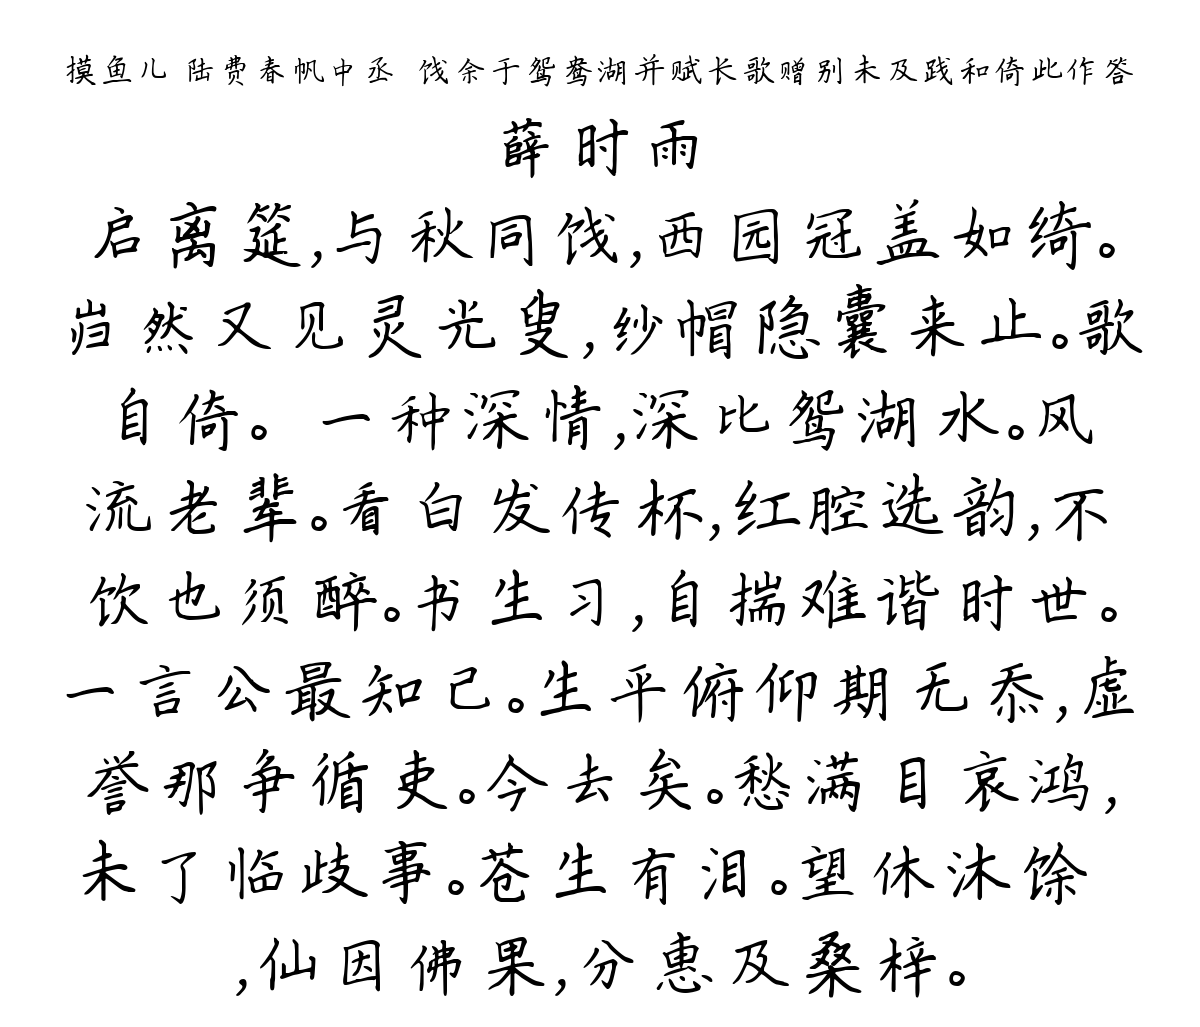 摸鱼儿 陆费春帆中丞 饯余于鸳鸯湖并赋长歌赠别未及践和倚此作答
薛时雨
启离筵,与秋同饯,西园冠盖如绮。
岿然又见灵光叟,纱帽隐囊来止。歌
自倚。 一种深情,深比鸳湖水。风
流老辈。看白发传杯,红腔选韵,不
饮也须醉。书生习,自揣难谐时世。
一言公最知己。生平俯仰期无忝,虚
誉那争循吏。今去矣。愁满目哀鸿,
未了临歧事。苍生有泪。望休沐馀
,仙因佛果,分惠及桑梓。